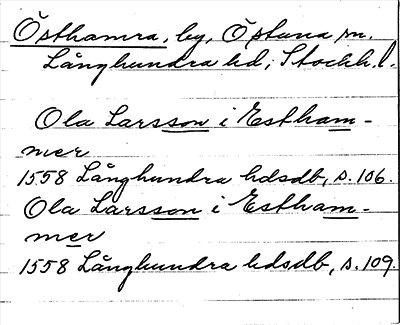 Östhamra, by, Östuna sn.
Långhundra hd, Stockh. l.
Ola Larsson i Estham-
mer
1558 Långhundra hdsdb, s. 106.
Ola Larsson i Estham-
mer
1558 Långhundra hdsdb, s. 109.